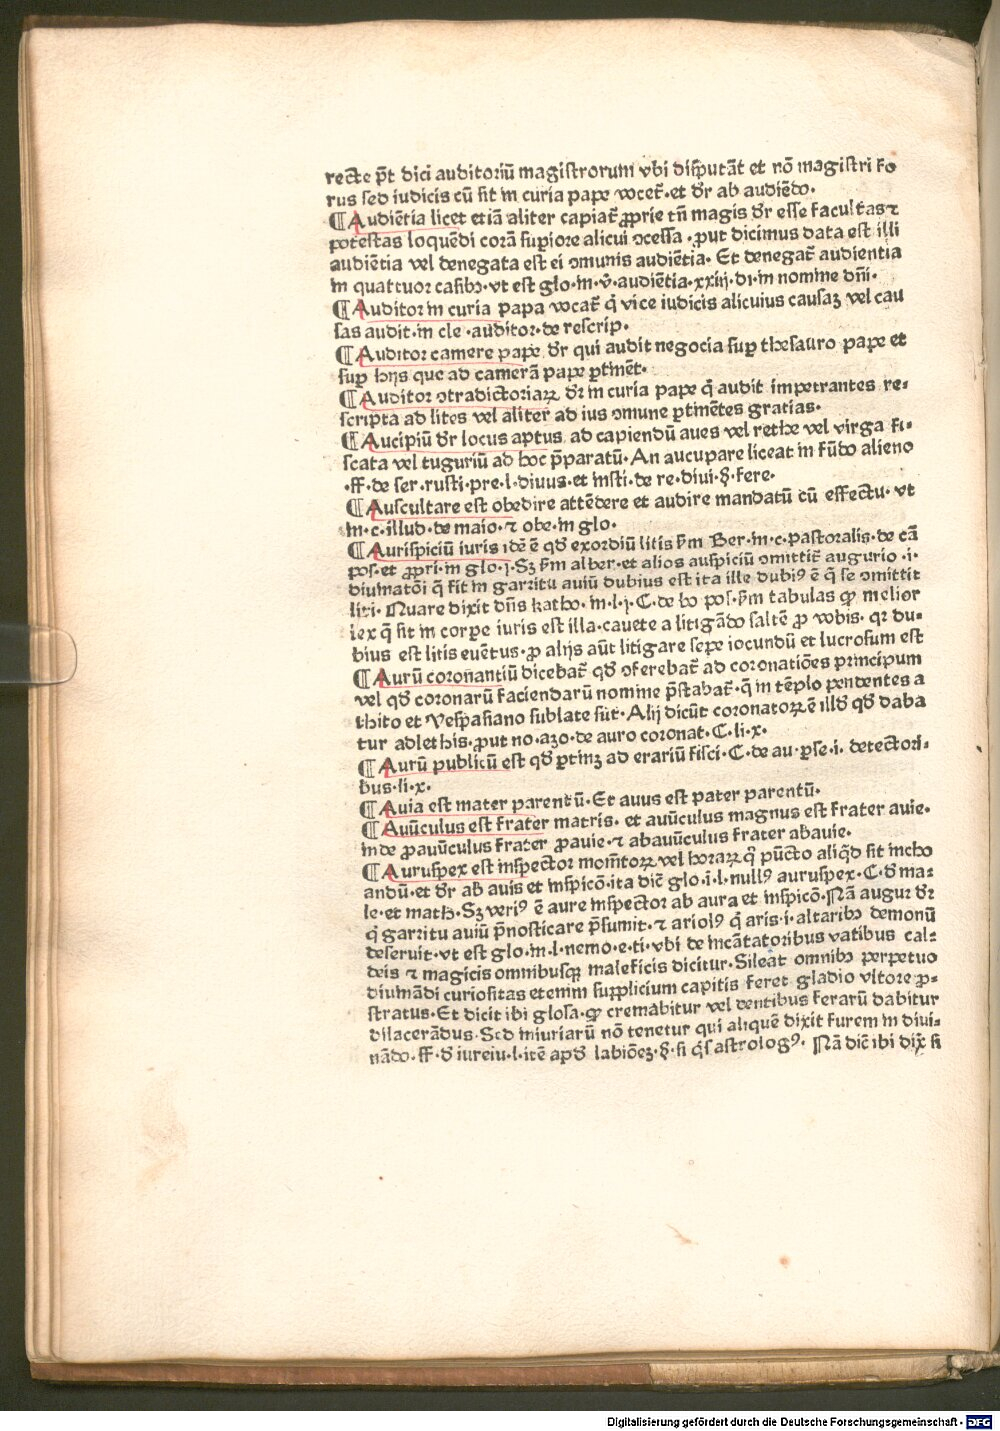 recte pn̄t dici auditoriū magistrorum vbi disputāt et nō magistri fo
rus sed iudicis cū sit in curia pape vocet᷑· et dr̄ ab audiēdo·
¶ Audiētia licet etiā aliter capiat᷑ ꝓprie tn̄ magis dr̄ esse facultas ⁊
potestas loquēdi corā supiore alicui ↄcessa · ꝓut dicimus data est illi
audiētia vel denegata est ei ↄmunis audiētia· Et denegat᷑ audientia
in quattuor casibꝫ· vt est glo·in·v̓·audiētia·xxiij·di·in nomine dn̄i·
¶ Auditor in curia papa vocat᷑ q̇ vice iudicis alicuius causaꝫ vel cau
sas audit·in cle ·auditor·de rescrip·
¶ Auditor camere pape dr̄ qui audit negocia suꝑ thesauro pape et
suꝑ hijs que ad camerā pape ꝑtinēt·
¶ Auditor ↄtradictoriaꝝ dr̄ in curia pape q̇ audit impetrantes re⸗
scripta ad lites vel aliter ad ius ↄmune ꝑtinētes gratias·
¶ Aucipiū dr̄ locus aptus ad capiendū aues vel rethe vel virga fi⸗
scata vel tuguriū ad hoc p̄paratū· An aucupare liceat in fūdo alieno
·ff·de ser·rusti·pre·l·diuus·et insti·de re·diui·§·fere·
¶ Auscultare est obedire attēdere et audire mandatū cū effectu· vt
in·c·illud·de maio·⁊ obe·in glo·
¶ Aurispiciū iuris idē ē qd̄ exordiū litis s̄m Ber·in·c·pastoralis·de cā
pos·et ꝓpri·in glo·j·Sꝫ s̄m alber·et alios auspiciū ↄmittit᷑ augurio ·i·
diuinatōi q̄ fit in garritu auiū dubius est ita ille dubiꝰ ē q̇ se ↄmittit
liti· Nuare dixit dn̄s katho·in·l·j·C·de bo pos·s̄m tabulas ꝙ melior
lex q̄ sit in corpe iuris est illa·cauete a litigādo saltē ꝓ vobis· qr du⸗
bius est litis euētus·ꝓ alijs aūt litigare sepe iocundū et lucrosum est
¶ Aurū coronantiū dicebat᷑ qd̄ ↄferebat᷑ ad coronatiōes principum
vel qd̄ coronarū faciendarū nomine p̄stabat᷑·q̄ in tēplo pendentes a
thito et Vespasiano sublate sūt·Alij dicūt coronatoꝝ ē illd̄ qd̄ daba
tur adlethis·ꝓut no·azo·de auro coronat·C·li·x·
¶ Aurū publicū est qd̄ ꝑtinꝫ ad erariū fisci·C·de au·ꝑse·i· detectori⸗
bus·li·x·
¶ Auia est mater parentū·Et auus est pater parentū·
¶ Auūculus est frater matris· et auūculus magnus est frater auie·
inde ꝓauūculus frater ꝓauie·⁊ abauūculus frater abauie·
¶ Auruspex est inspector momētoꝝ vel horaꝝ q̇ pūcto aliq̇d sit incho
andū·et dr̄ ab auis et inspicō·ita diē glo·i·l·nullꝰ auruspex·C·d̄ ma⸗
le·et math·Sꝫ veriꝰ ē aure inspector ab aura et inspicō·Nā augur dr̄
q̇ garritu auiū p̄nosticare p̄sumit·⁊ ariolꝰ q̇ aris·i·altaribꝫ demonū
deseruit·vt est glo·in·l·nemo·e·ti·vbi de incātatoribus vatibus cal⸗
deis ⁊ magicis omnibusqꝫ maleficis dicitur·Sileat omnibꝫ perpetuo
diuinādi curiositas etenim supplicium capitis feret gladio vltore ꝓ⸗
stratus·Et dicit ibi glosa·ꝙ cremabitur vel dentibus ferarū dabitur
dilacerādus·Sed iniuriarū nō tenetur qui aliquē dixit furem in diui⸗
nādo·ff·d̄ iureiu·l·itē apd̄ labiōeꝫ·§·si q̇s astrologꝰ· Nā diē ibi dix̄ si
Digitalisierung gefördert durch die Deutsche Forschungsgemeinschaft · DFG